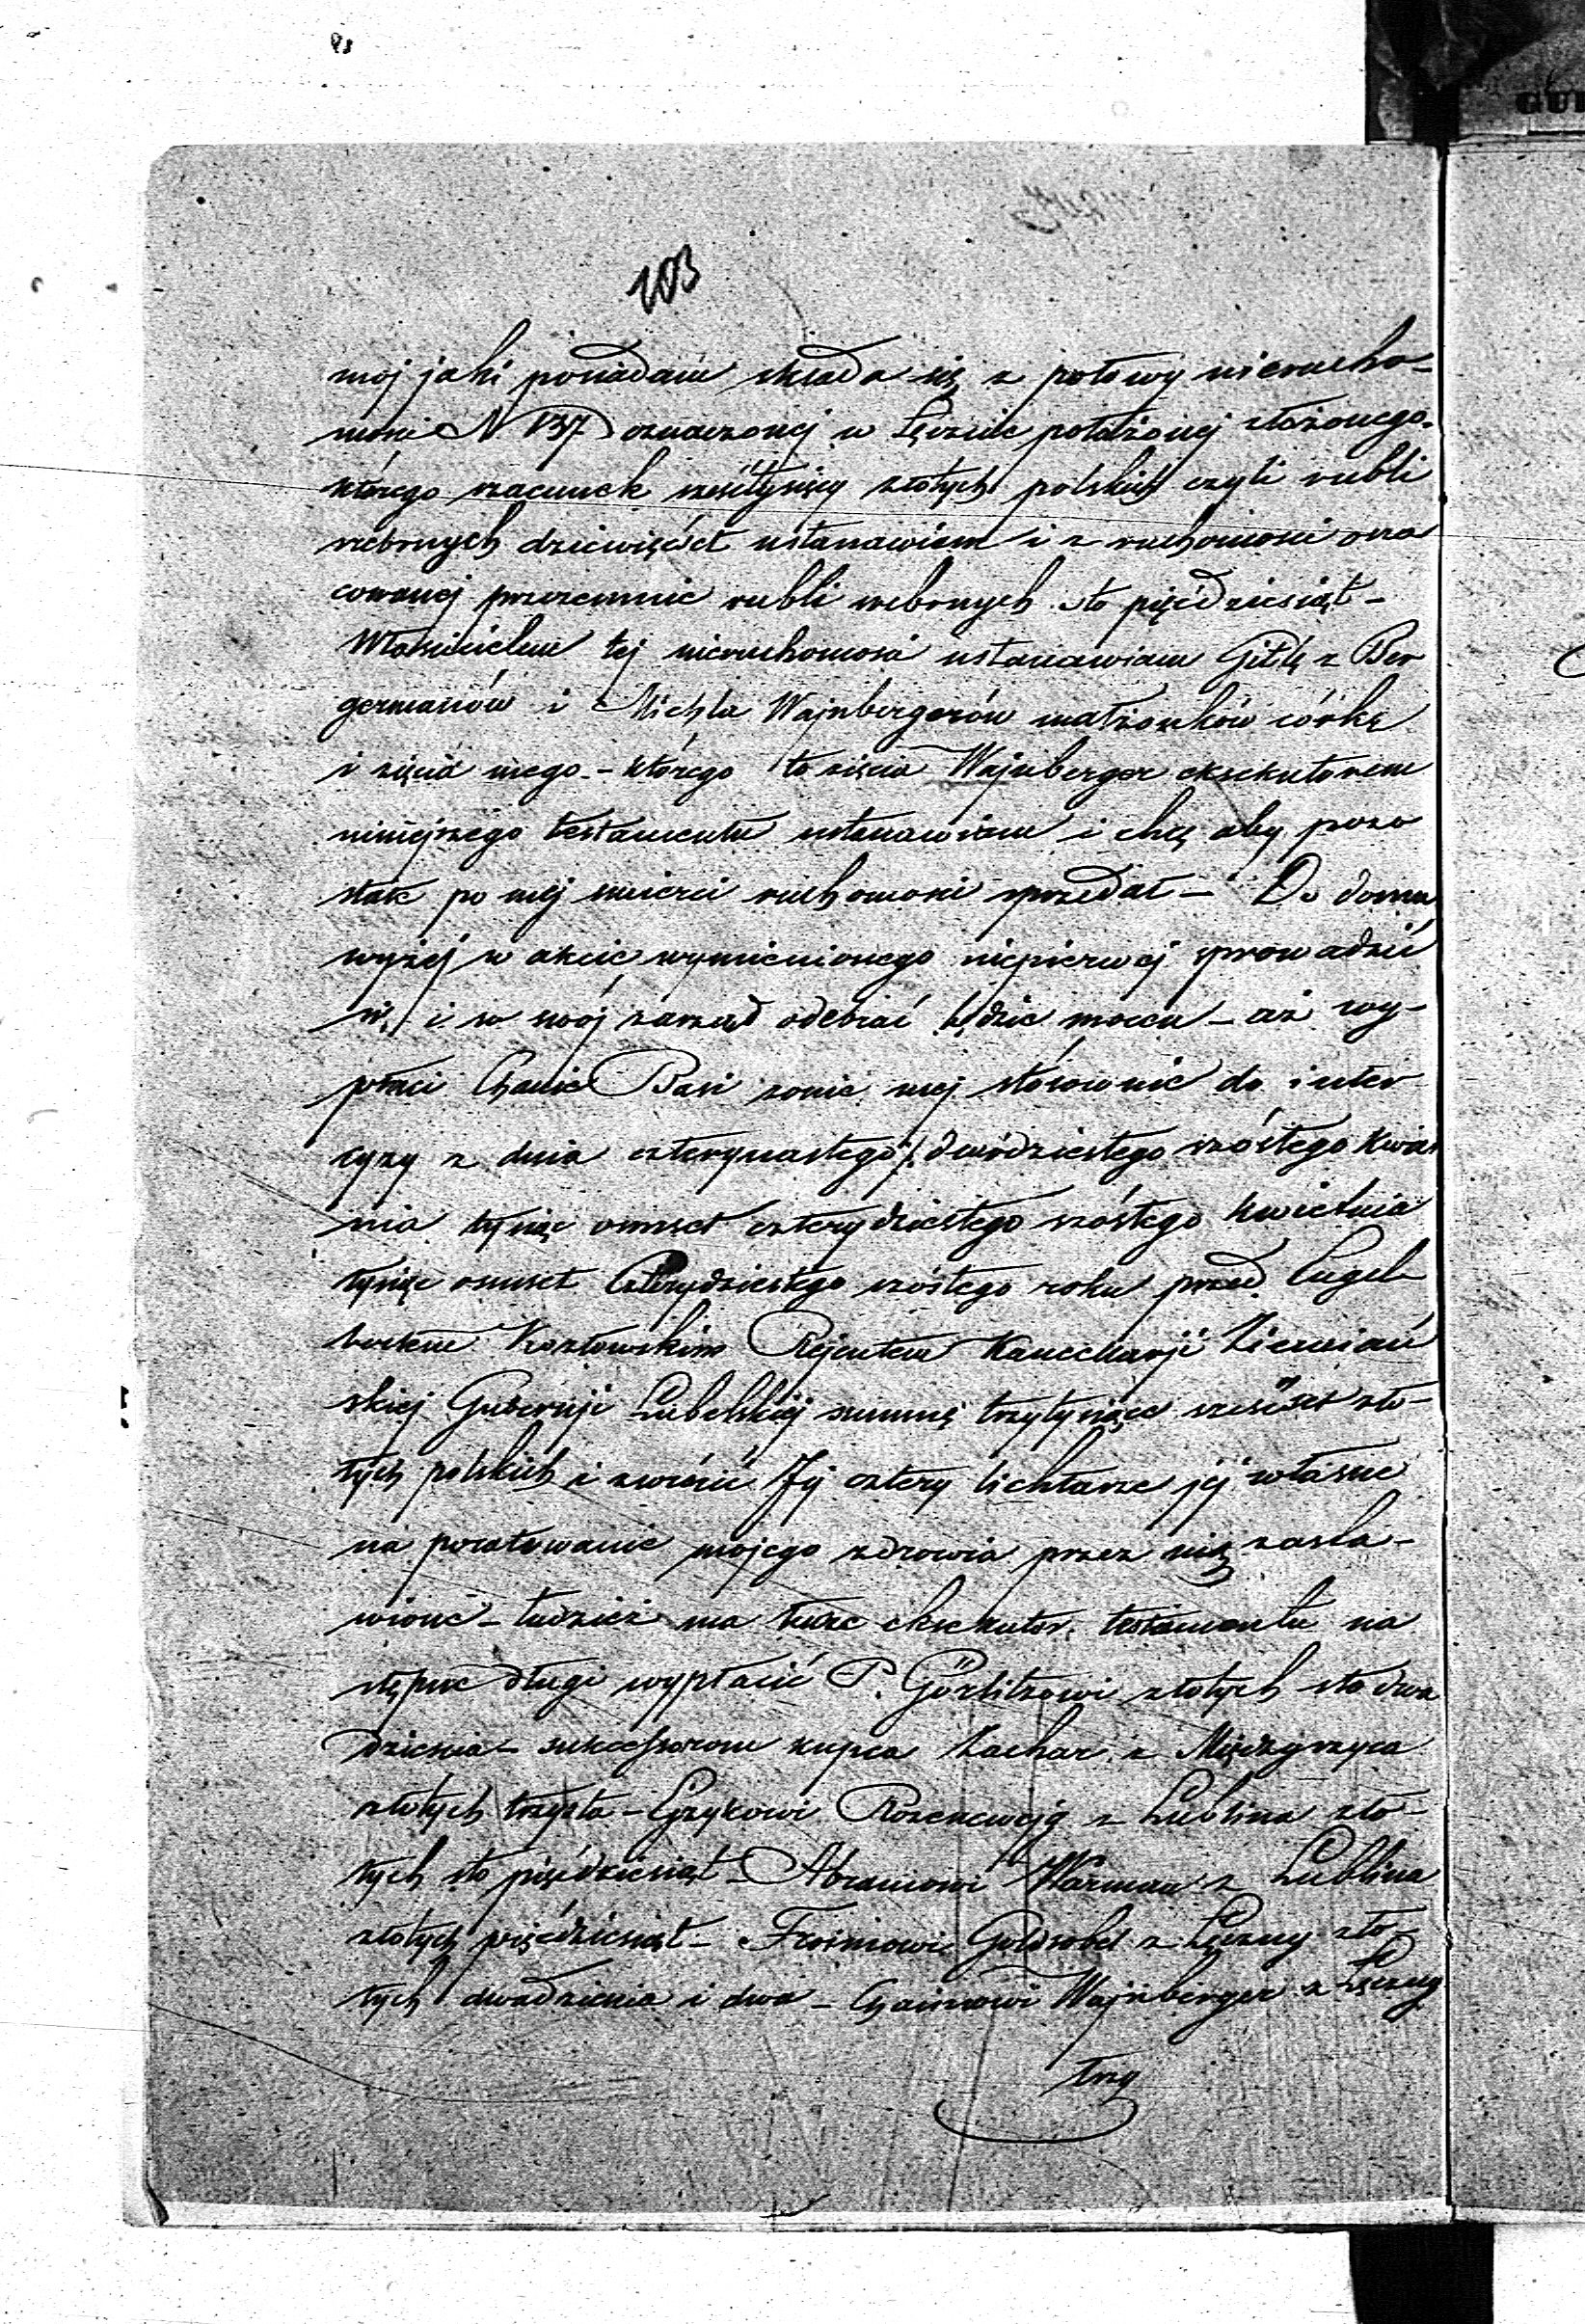 103
mój jaki posiadam składa się z połowy nierucho-
mości N. 137 oznaczonej w Łęcznie położonej złożonego-
którego szacunek sześćtysięcy złotych polskich czyli rubli
srebrnych dziewięćset ustanawiam i z ruchomości osza
cowanej przezemnie rubli srebrnych sto pięćdziesiąt-
Właścicielem tej nieruchomości ustanawiam Gitlę z Ber
germanów i Michla Wajnbergerów małżonków córkę
i zięcia mego - którego to zięcia Wajnberger exekutorem
niniejszego testamentu ustanawiam i chcę aby pozo
stałe po mej śmierci ruchomości sprzedał - Do domu
wyżej w akcie wymienionego niepierwej sprowadzić
się i w swój zarząd odebrać będzie mocen - aż wy-
płaci Chanie Basi żonie mej stósownie do inter
cyzy z dnia czternastego/ dwódziestego szóstego Kwiet
nia tysiąc ośmset czterydziestego szóstego kwietnia
tysiąc ośmset Czterydziestego szóstego roku przed Engel
bertem Kozłowskim Rejentem Kancellaryi Ziemiań
skiej Guberniji Lubelskiej summę trzytysiące sześćset zło-
tych polskich i zwrócić Jej cztery lichtarze jej własne
na poratowanie mojego zdrowia przez nią zasta-
wione - tudzież ma tenże exekutor testamentu na
stępne długi wypłacić P. Görlitzowi złotych sto dwa
dzieścia - sukcessorom kupca Zachar z Międzyrzyca
złotych trzysta - Eyzykowi Rozencwejg z Lublina zło-
tych sto pięćdziesiąt - Abramowi Warman z Lublina
złotych pięćdziesiąt - Froimowi Goldsobel z Łęczny zło-
tych dwadzieścia i dwa - Chaimowi Wajnberger z Łęczny
trzy